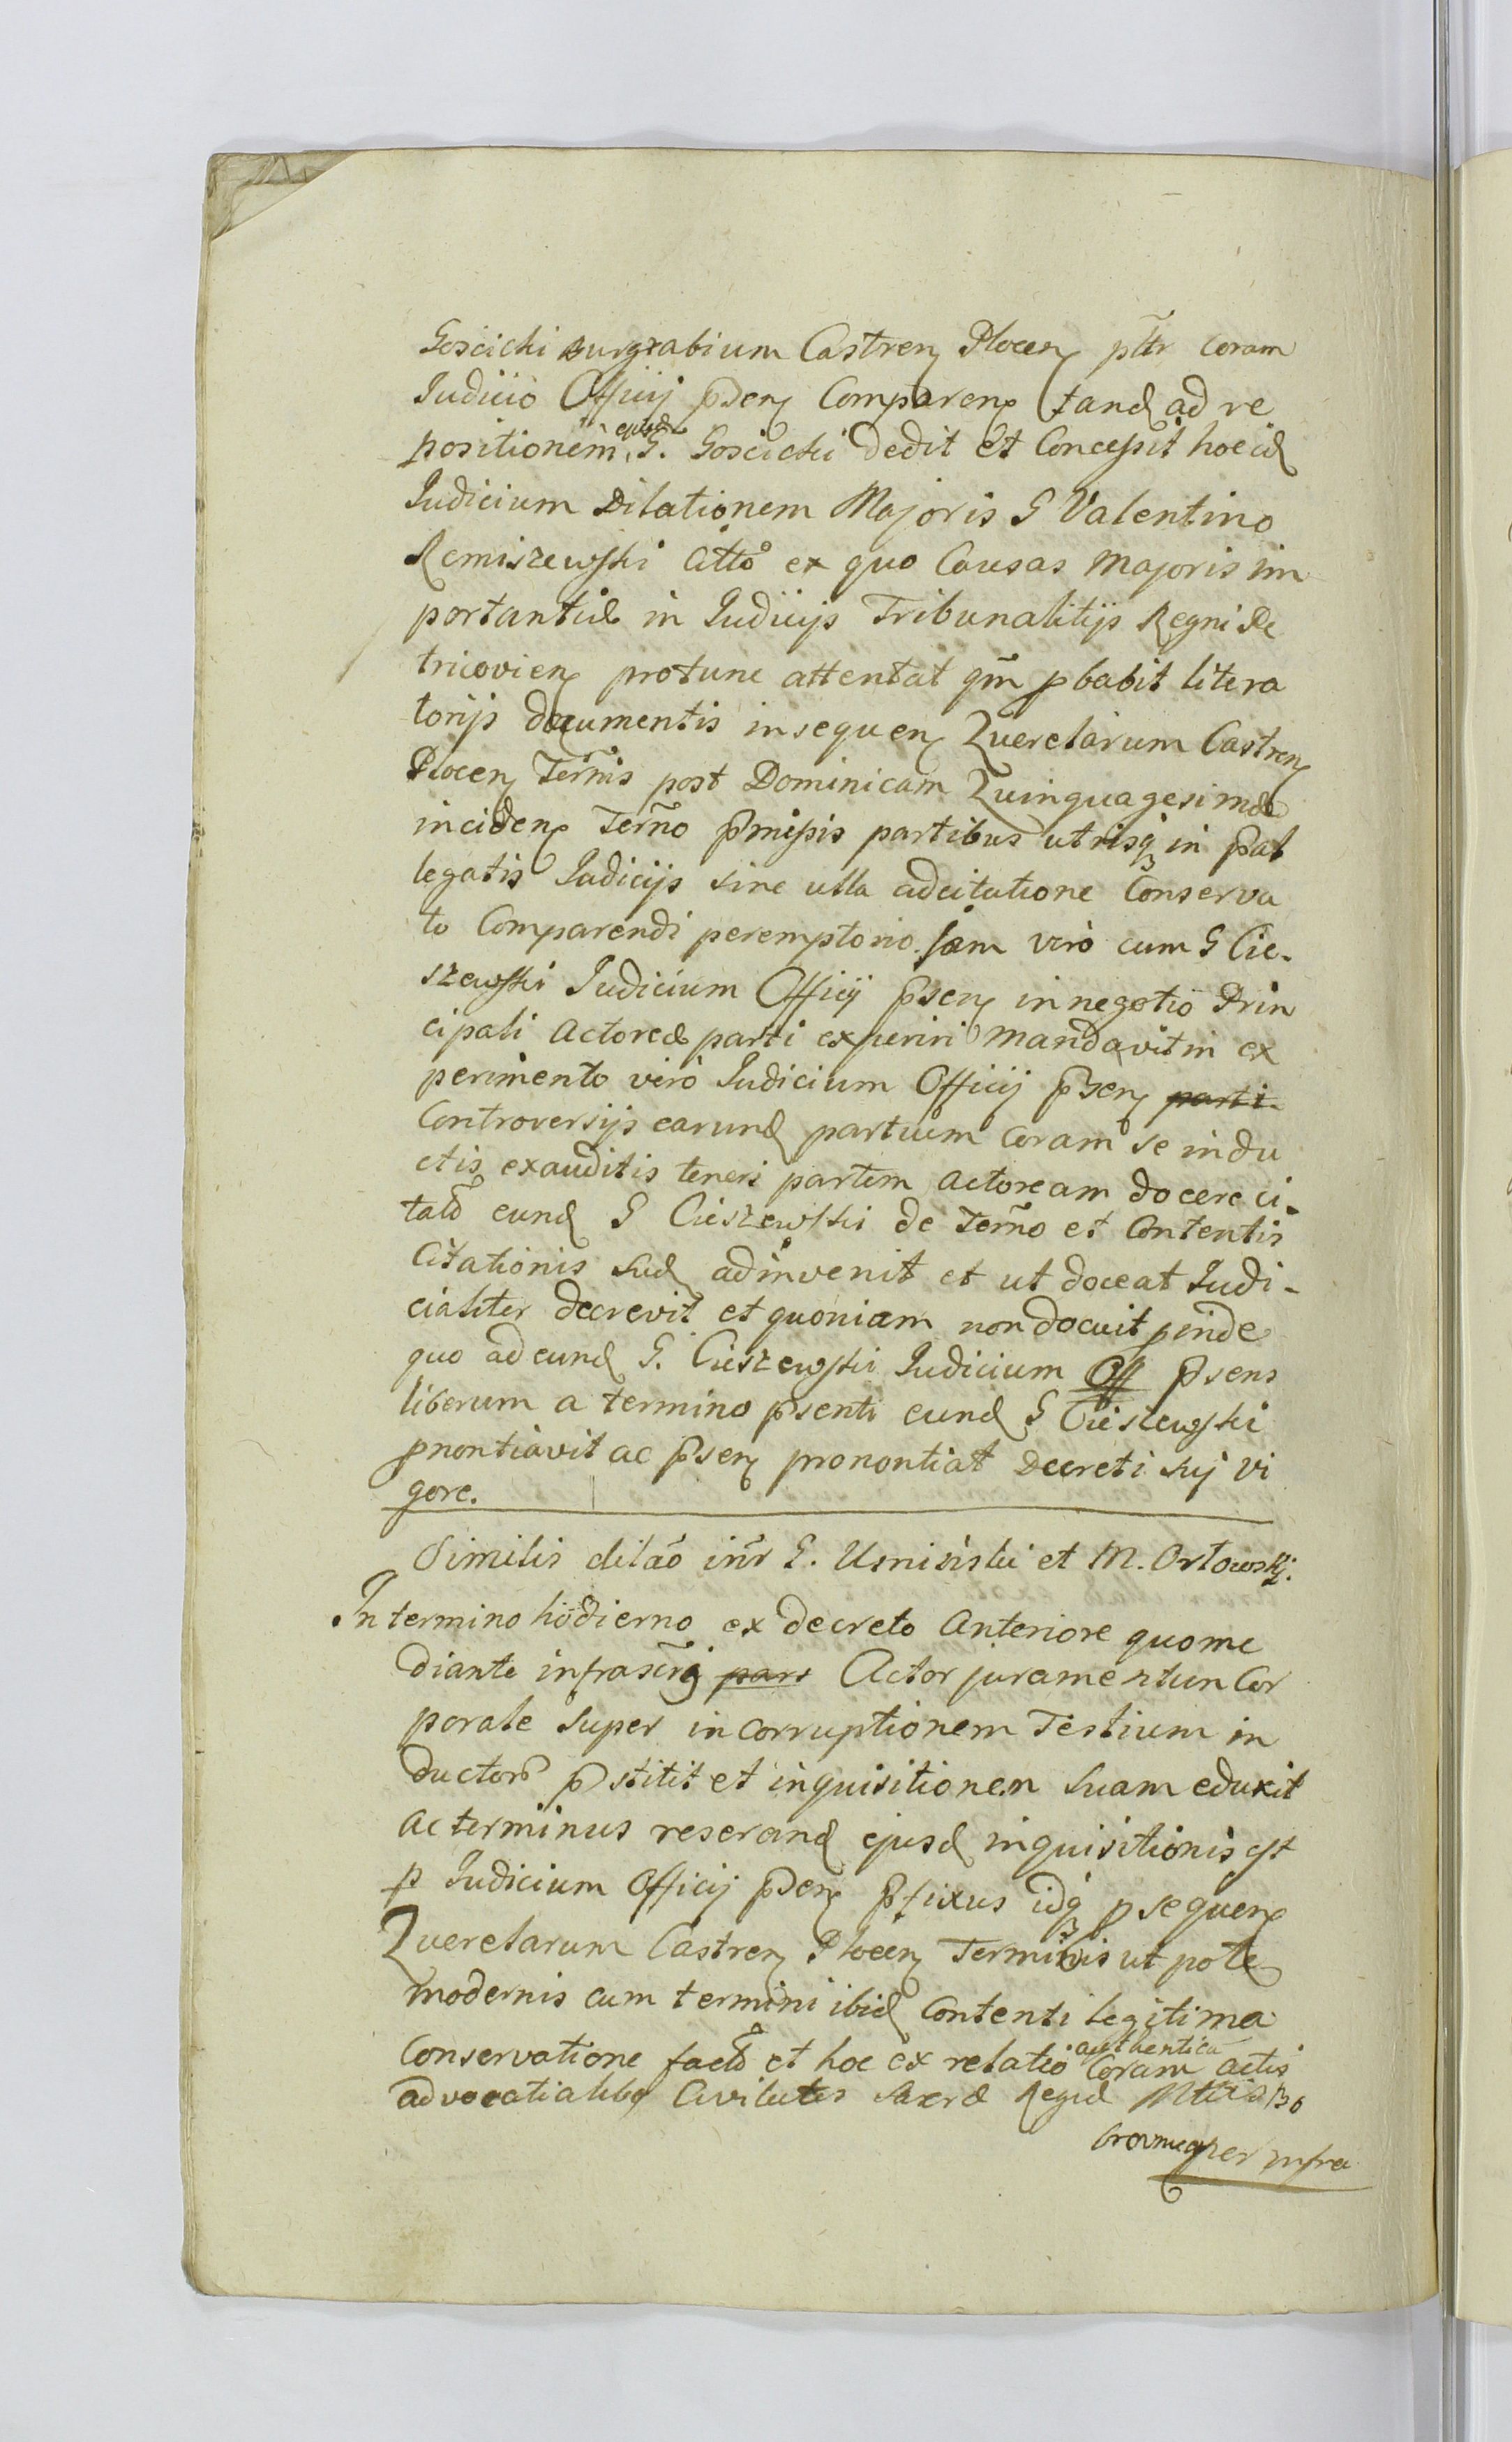 Goscicki Burgrabium Castren Plocen pttr coram
Judicio Officij pnden Comparens tand ad re
positionem ejusd G. Goscicki dedit et Concessit hoc id
Judicium Dilationem Majoris G Valentino
Remiszewski Citto ex quo Causas Majoris im
portantiæ in Judicijs Tribunalitijs Regni Pe
tricovien protunc attentat qm pbabit litera
torijs documentis in sequen Querelarum Castren
Plocen Ternis post Dominicam Quinquagesimæ
inciden Terno pmissis partibus utrisq in pal
legatis Judicijs sine ulla adcitatione Conserva
to Comparendi peremptorio. Jam verò cum G Cie-
szewski Judicium Officij psen in negotio Prin
cipali Actoreæ parti experiri Mandavit in ex
perimento verò Judicium Officij psen parti
Controversijs earund partium coram se indu
ctis exauditis teneri partem actoream docere ci-
tato eund G Cieszewski de Terno et Contentis
Citationis suæ adinvenit et ut doceat Judi-
cialiter decrevit et quoniam non docuit pinde
quo ad eund G. Cieszewski Judicium Off psens
liberum a termino psenti eund G Cieszewski
pnontiavit ac psen pronontiat Decreti sui vi
gore.
Similis dilao inr G. Umiński et M. Orłowski.
In termino hodierno ex decreto Anteriore quo me
diante infrascrij pars Actor juramentum Cor
porale super incorruptionem Testium in
ductor pstitit et inquisitionem suam eduxit
ac terminus reserand ejusd inquisitionis est
p Judicium Officij pden pfixus idq p sequens
Querelarum Castren Plocen Terminis ut pote
modernis cum termini ibid Contenti legitima
Conservatione facto et hoc ex relatio authentica coram actis
advocatialibq Civilutis Sacræ Regiæ Mttis
per infra